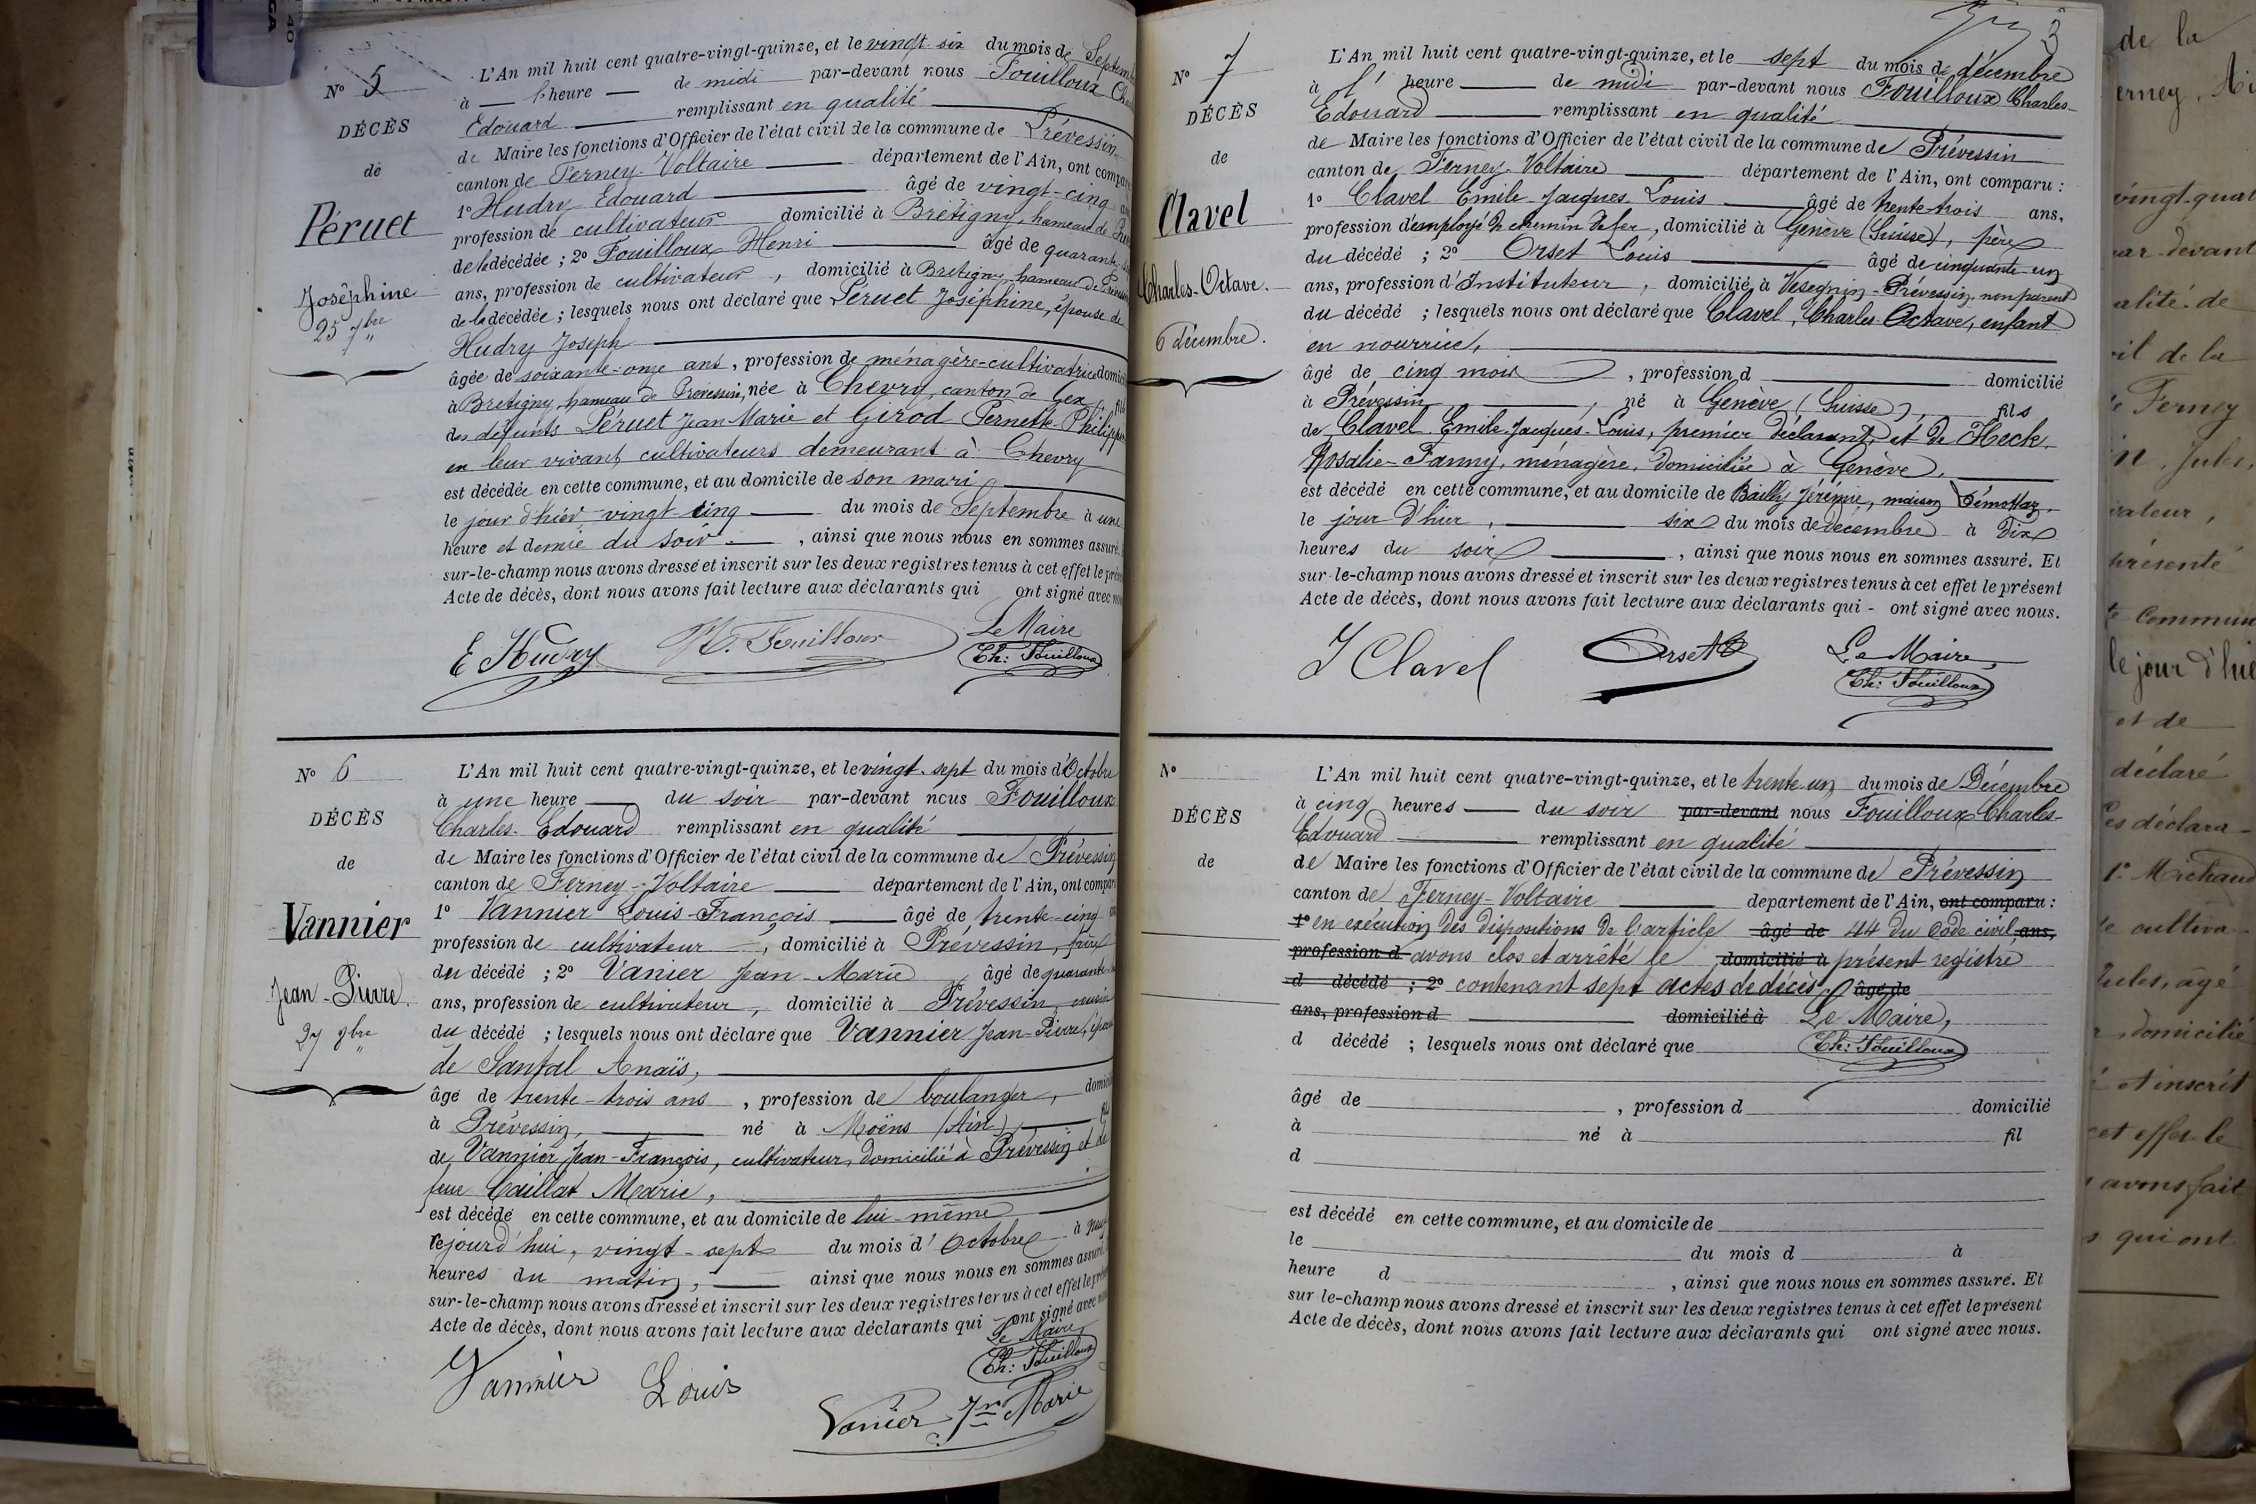 N° 5
DÉCÈS
de
Péruet
Joséphine
25 7bre
L'An mil huit cent quatre-vingt-quinze, et le vingt-six du mois de Septem
à l'heure de midi par-devant nous Fouilloux Cha
Edouard remplissant en qualité
de Maire les fonctions d'Officier de l'état civil de la commune de Prévessin
canton de Ferney-Voltaire département de l'Ain, ont compar
1° Hudry Edouard âgé de vingt-cinq
profession de cultivateur domicilié à Brétigny, hameau de
de la décédée ; 2° Fouilloux Henri âgé de quarante
ans, profession de cultivateur, domicilié à Brétigny, hameau de Prévessin
de la décédée ; lesquels nous ont déclaré que Péruet Joséphine, épouse de
Hudry Joseph
âgée de soixante-onze ans, profession de ménagère-cultivatrice domici
à Brétigny, hameau de Prévessin, née à Chevry, canton de Gex, fille
des défunts Péruet Jean Marie et Girod Pernette Philippe
en leur vivant cultivateurs demeurant à Chevry
est décédée en cette commune, et au domicile de son mari
le jour d'hier vingt-cinq du mois de Septembre à une
heure et demie du soir, ainsi que nous nous en sommes assuré.
sur-le-champ nous avons dressé et inscrit sur les deux registres tenus à cet effet le prés
Acte de décès, dont nous avons fait lecture aux déclarants qui ont signé avec nou
E Hudry H. Fouilloux Le Maire
Ch: Fouilloux
N° 6
DÉCÈS
de
Vannier
Jean-Pierre.
27 9bre
L'An mil huit cent quatre-vingt-quinze, et le vingt-sept du mois d'Octobre
à une heure du soir par-devant nous Fouilloux
Charles-Edouard remplissant en qualité
de Maire les fonctions d'Officier de l'état civil de la commune de Prévessin
canton de Ferney-Voltaire département de l'Ain, ont compar
1° Vannier Louis-François âgé de trente-cinq
profession de cultivateur, domicilié à Prévessin, frère
du décédé ; 2° Vanier Jean-Marie âgé de quarante
ans, profession de cultivateur, domicilié à Prévessin, cousin
du décédé ; lesquels nous ont déclaré que Vannier Jean-Pierre, époux
de Santal Anaïs,
âgé de trente-trois ans, profession de boulanger, domici
à Prévessin, né à Moëns (Ain), fils
de Vannier Jean-François, cultivateur, domicilié à Prévessin et de
feue Caillat Marie,
est décédé en cette commune, et au domicile de lui-même
le jourd'hui, vingt-sept du mois d'Octobre à
heures du matin, ainsi que nous nous en sommes assuré.
sur-le-champ nous avons dressé et inscrit sur les deux registres tenus à cet effet le prés
Acte de décès, dont nous avons fait lecture aux déclarants qui ont signé avec nous
Le Maire
Ch: Fouilloux
Vannier Louis
Vanier Jn Marie
3
N° 7
DÉCÈS
de
Clavel
Charles-Octave.
6 décembre.
L'An mil huit cent quatre-vingt-quinze, et le sept du mois de décembre
à l'heure de midi par-devant nous Fouilloux Charles-
Edouard remplissant en qualité
de Maire les fonctions d'Officier de l'état civil de la commune de Prévessin
canton de Ferney-Voltaire département de l'Ain, ont comparu :
1° Clavel Emile-Jacques-Louis âgé de trente-trois ans,
profession d'employé de chemin de fer, domicilié à Genève (Suisse), père
du décédé ; 2° Orset Louis âgé de cinquante-un
ans, profession d'Instituteur, domicilié à Vésegnin-Prévessin, non parent
du décédé ; lesquels nous ont déclaré que Clavel, Charles-Octave, enfant
en nourrice,
âgé de cinq mois, profession d domicilié
à Prévessin, né à Genève (Suisse), fils
de Clavel Emile-Jacques-Louis, premier déclarant, et de Heck
Rosalie-Fanny, ménagère, domiciliée à Genève,
est décédé en cette commune, et au domicile de Bailly Jérémie, maison Démottaz,
le jour d'hier, six du mois de décembre à dix
heures du soir, ainsi que nous nous en sommes assuré. Et
sur-le-champ nous avons dressé et inscrit sur les deux registres tenus à cet effet le présent
Acte de décès, dont nous avons fait lecture aux déclarants qui - ont signé avec nous.
J Clavel Orset Le Maire,
Ch: Fouilloux
N°
DÉCÈS
de
L'An mil huit cent quatre-vingt-quinze, et le trente-un du mois de Décembre
à cinq heures du soir par-devant nous Fouilloux Charles-
Edouard remplissant en qualité
de Maire les fonctions d'Officier de l'état civil de la commune de Prévessin
canton de Ferney-Voltaire département de l'Ain, ont comparu :
1° en exécution des dispositions de l'article âgé de 44 du Code civil ans,
profession d avons clos et arrêté le domicilié à présent registre
d décédé ; 2° contenant sept actes de décès. âgé de
ans, profession d domicilié à Le Maire,
d décédé ; lesquels nous ont déclaré que Ch: Fouilloux
âgé de , profession d domicilié
à né à fil
d
est décédé en cette commune, et au domicile de
le du mois d à
heure d , ainsi que nous nous en sommes assuré. Et
sur le-champ nous avons dressé et inscrit sur les deux registres tenus à cet effet le présent
Acte de décès, dont nous avons fait lecture aux déclarants qui ont signé avec nous.
de la
erney,
vingt-quat
par-devant
alité de
il de la
Ferney
Jules,
vateur,
présenté
commun
le jour d'hie
et de
déclaré
es déclara-
1° Michaud
cultiva-
Jules, âgé
domicilié
et inscrit
cet effet le
avons fait
qui ont